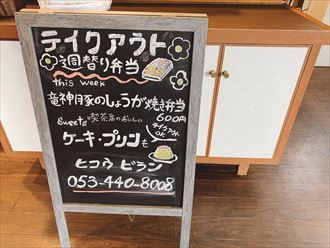 テイクアウト
週替り弁当
this week
竜神豚のしょうが焼き弁当
600円
sweets 喫茶店のおいしい
テイクアウト
OK
ケーキ・プリンも
ヒコウビラン
053-440-8008